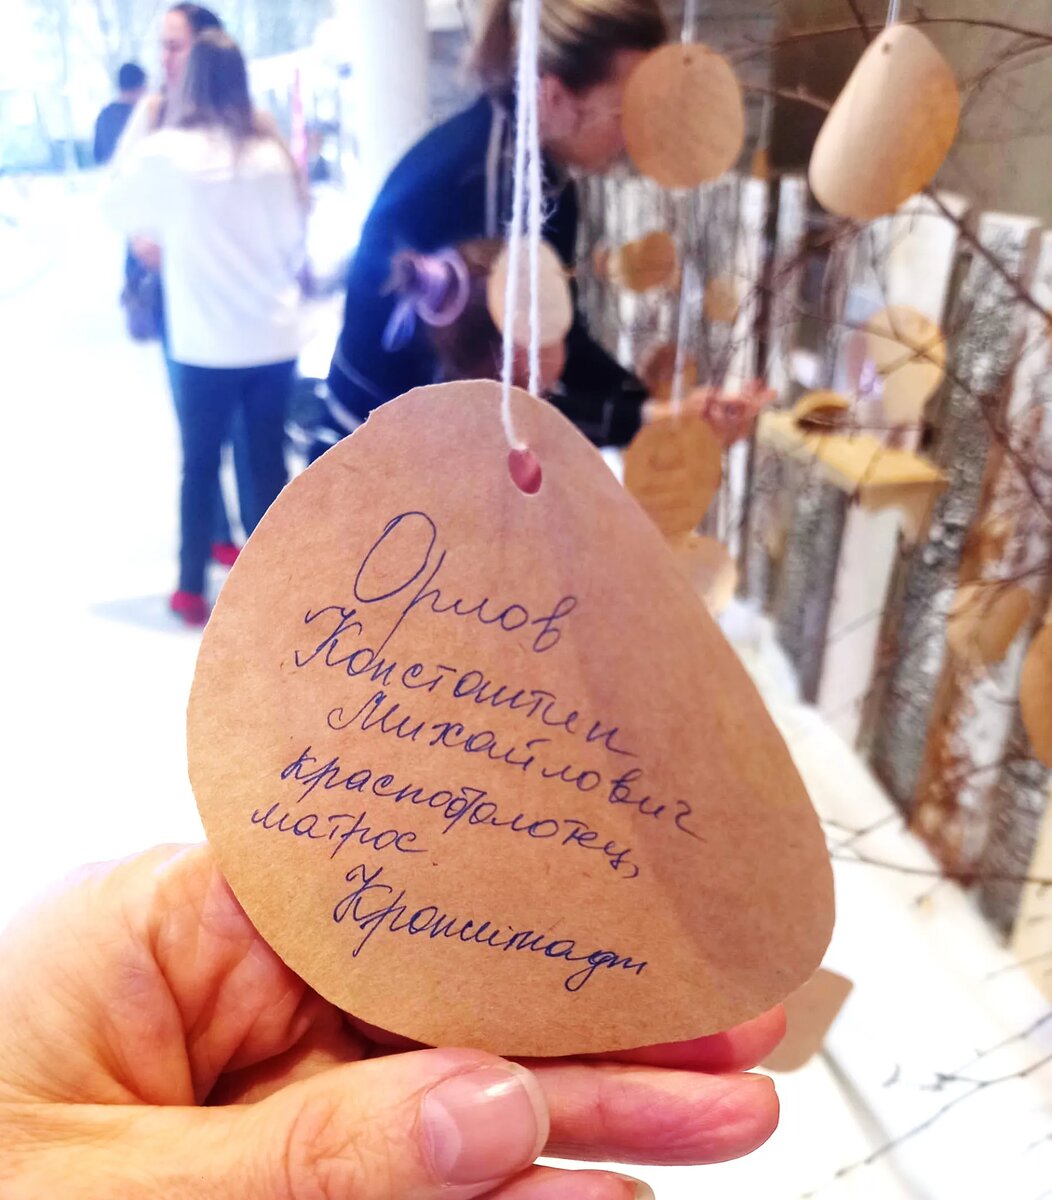 Орлов
Константин
Михайлович
краснофлотец,
матрос
Кронштадт